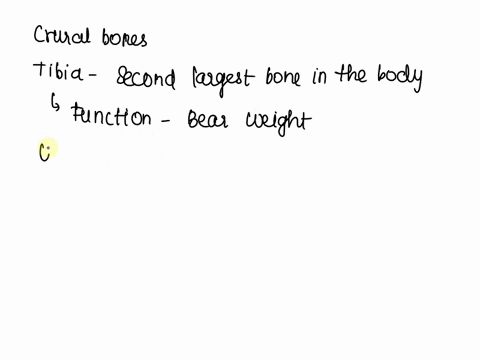 Crural bones
Tibia - Second largest bone in the body
↳ Function - Bear weight